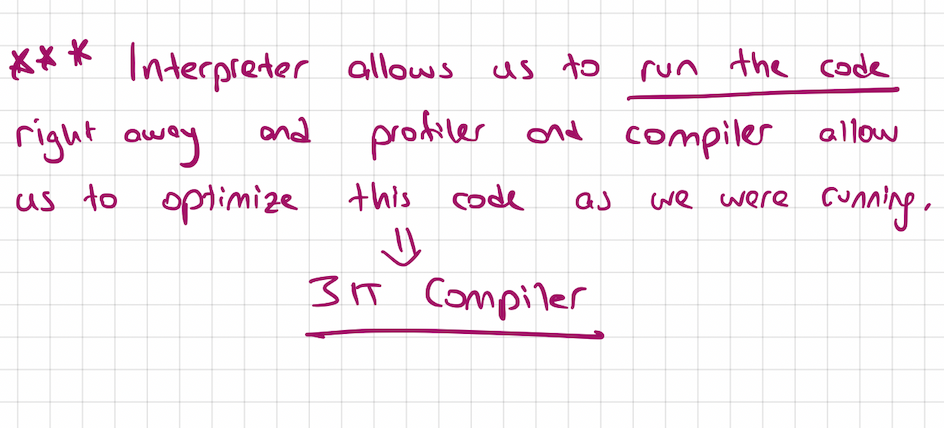 *** Interpreter allows us to run the code
right away and profiler and compiler allow
us to optimize this code as we were running.
⇓
JIT Compiler